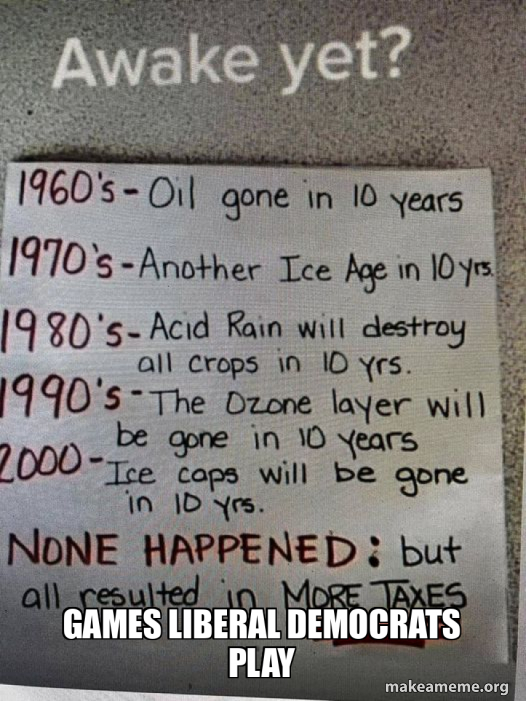 Awake yet?
1960's - Oil gone in 10 years
1970's - Another Ice Age in 10 yrs.
1980's - Acid Rain will destroy
all crops in 10 yrs.
1990's - The Ozone layer will
be gone in 10 years
2000 - Ice caps will be gone
in 10 yrs.
NONE HAPPENED: but
all resulted in MORE TAXES
GAMES LIBERAL DEMOCRATS
PLAY
makeameme.org